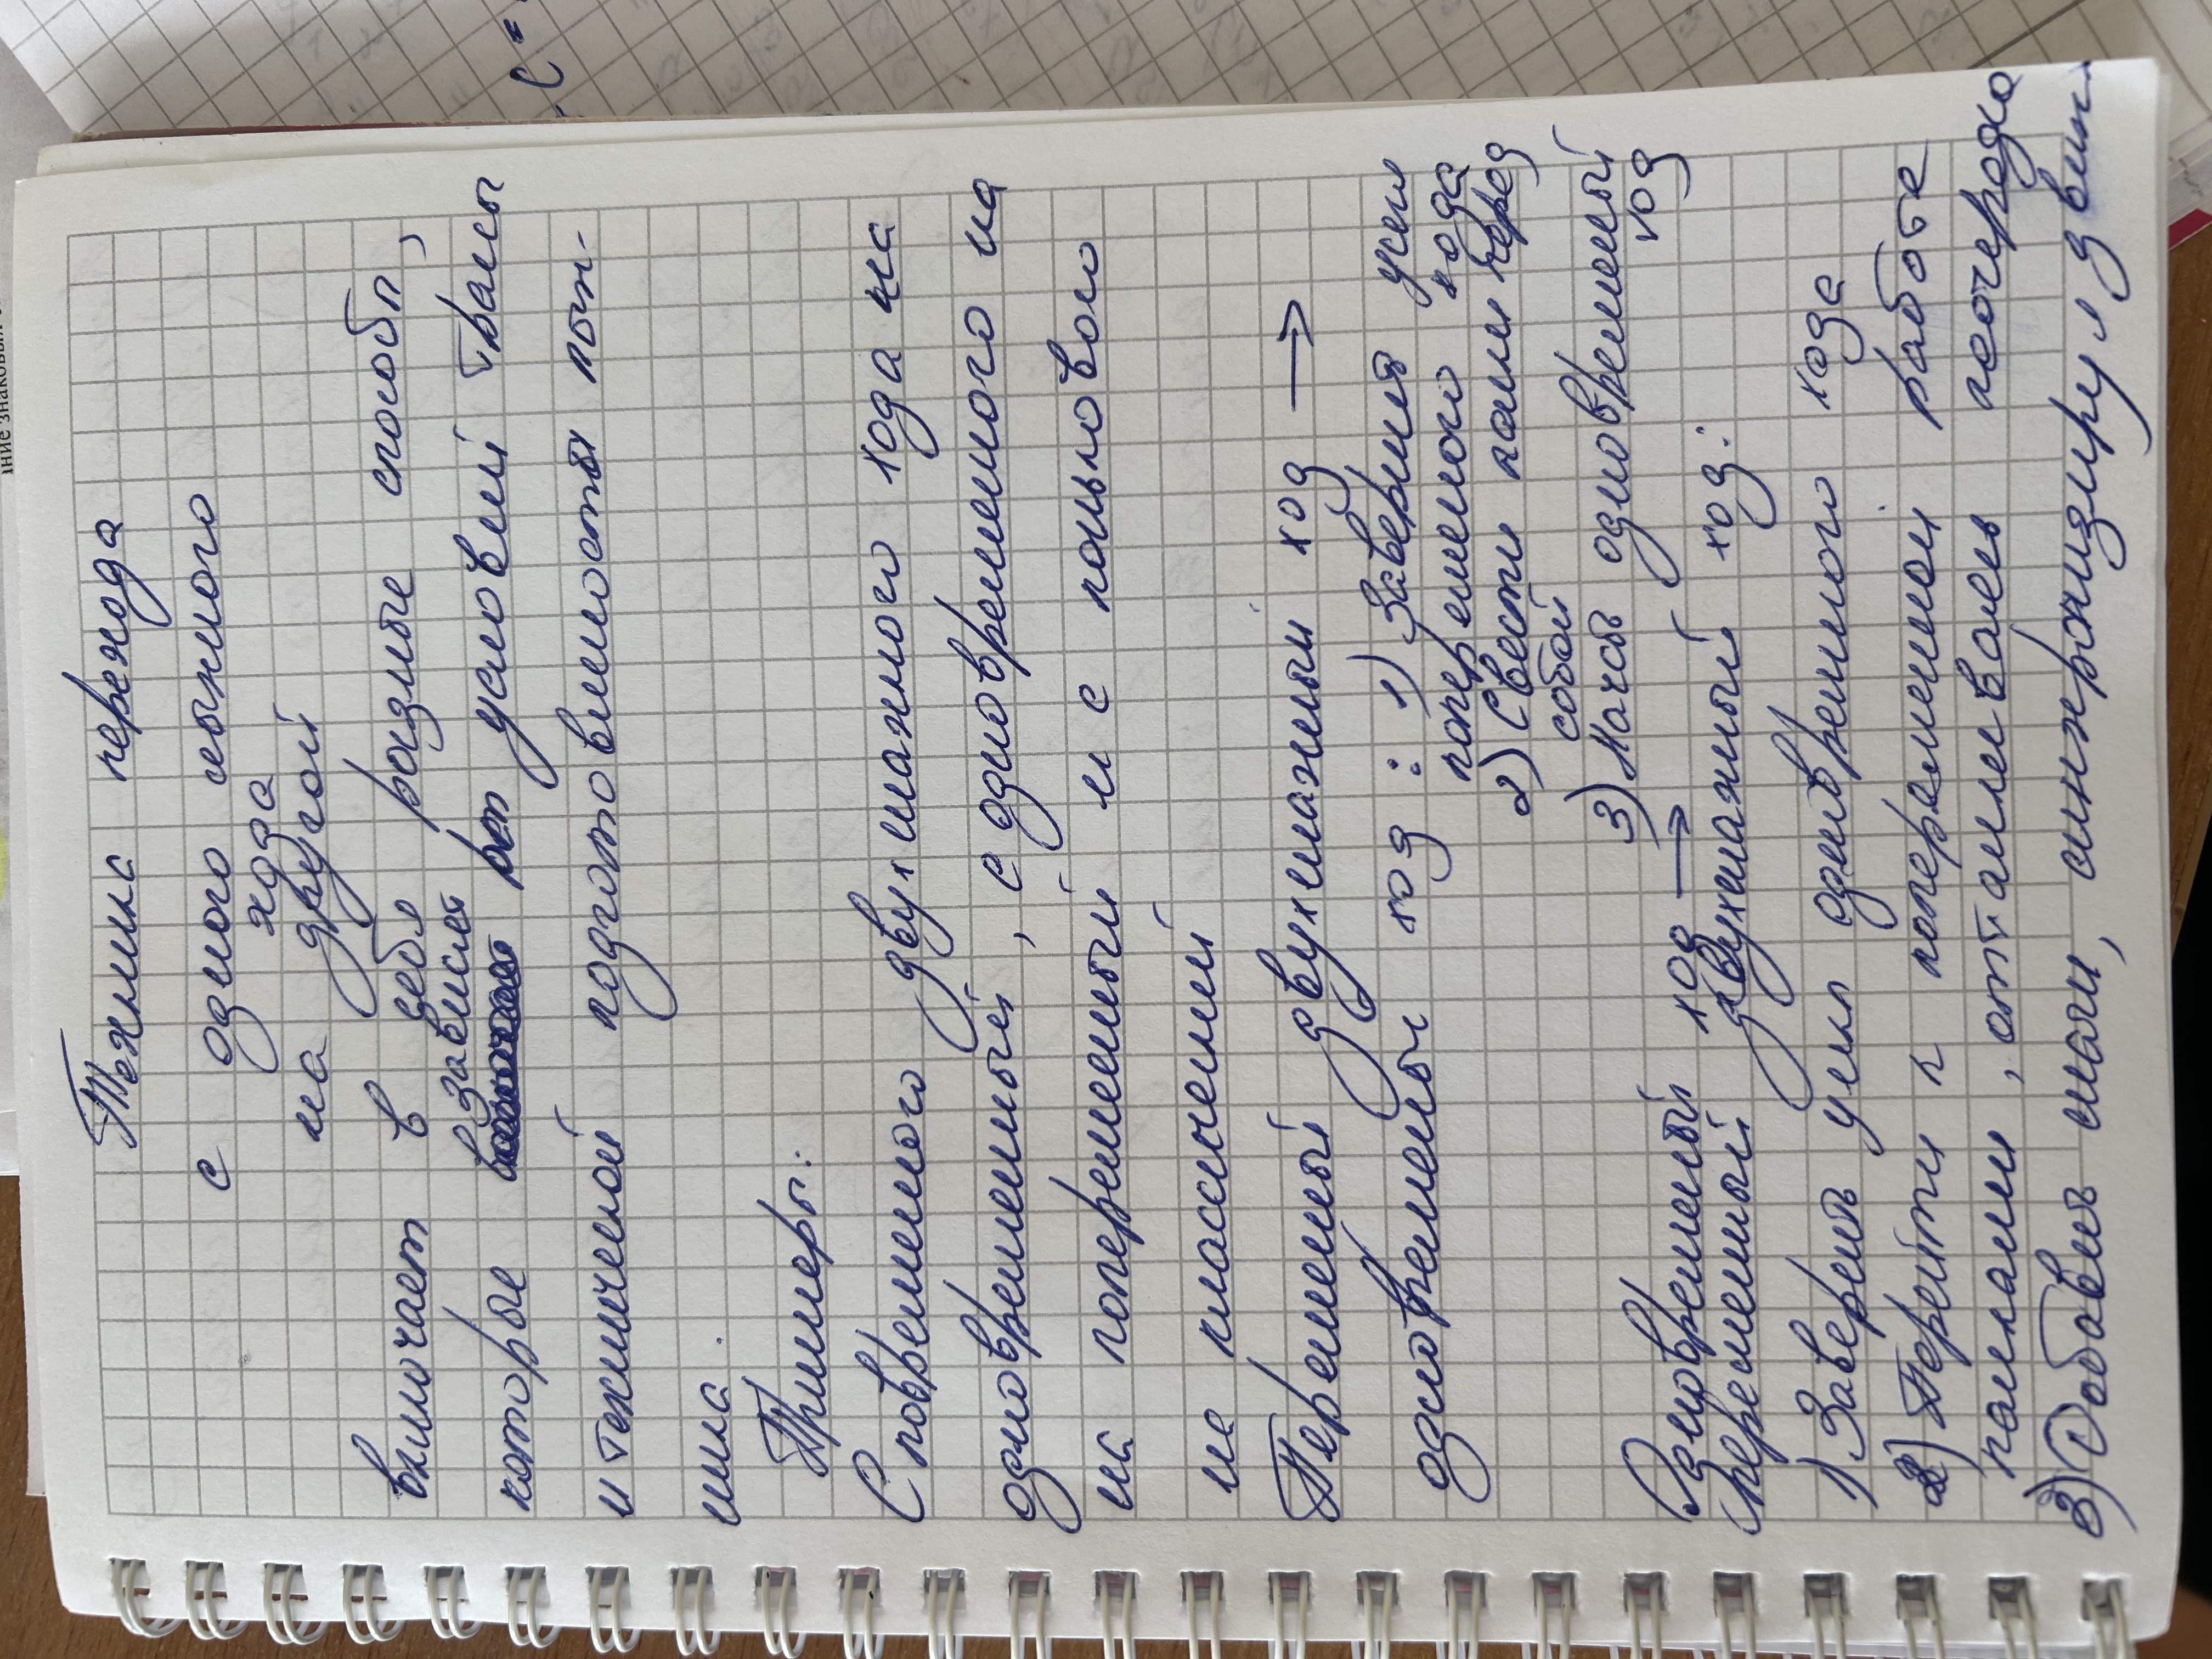 Техника перехода
с одного лыжного
хода
на другой
включает в себя разные способы,
которые зависят от условий трассы
и технической подготовленности лыж-
ника.
Примеры:
С попеременного двухшажного хода на
одновременный, с одновременного на
на попеременный и с конькового
на классический
Переменный двухшажный ход →
одновременный ход : 1) Завершить цикл
попеременного хода
2) Свести палки перед
собой
3) Начать одновременный
ход
Одновременный ход →
переменный двухшажный ход:
1) Завершить цикл одновременного хода
2) Перейти к попеременной работе
палками, отталкиваясь поочередно
3) Добавить шаги, синхронизируя движ
ание знаковых
с =